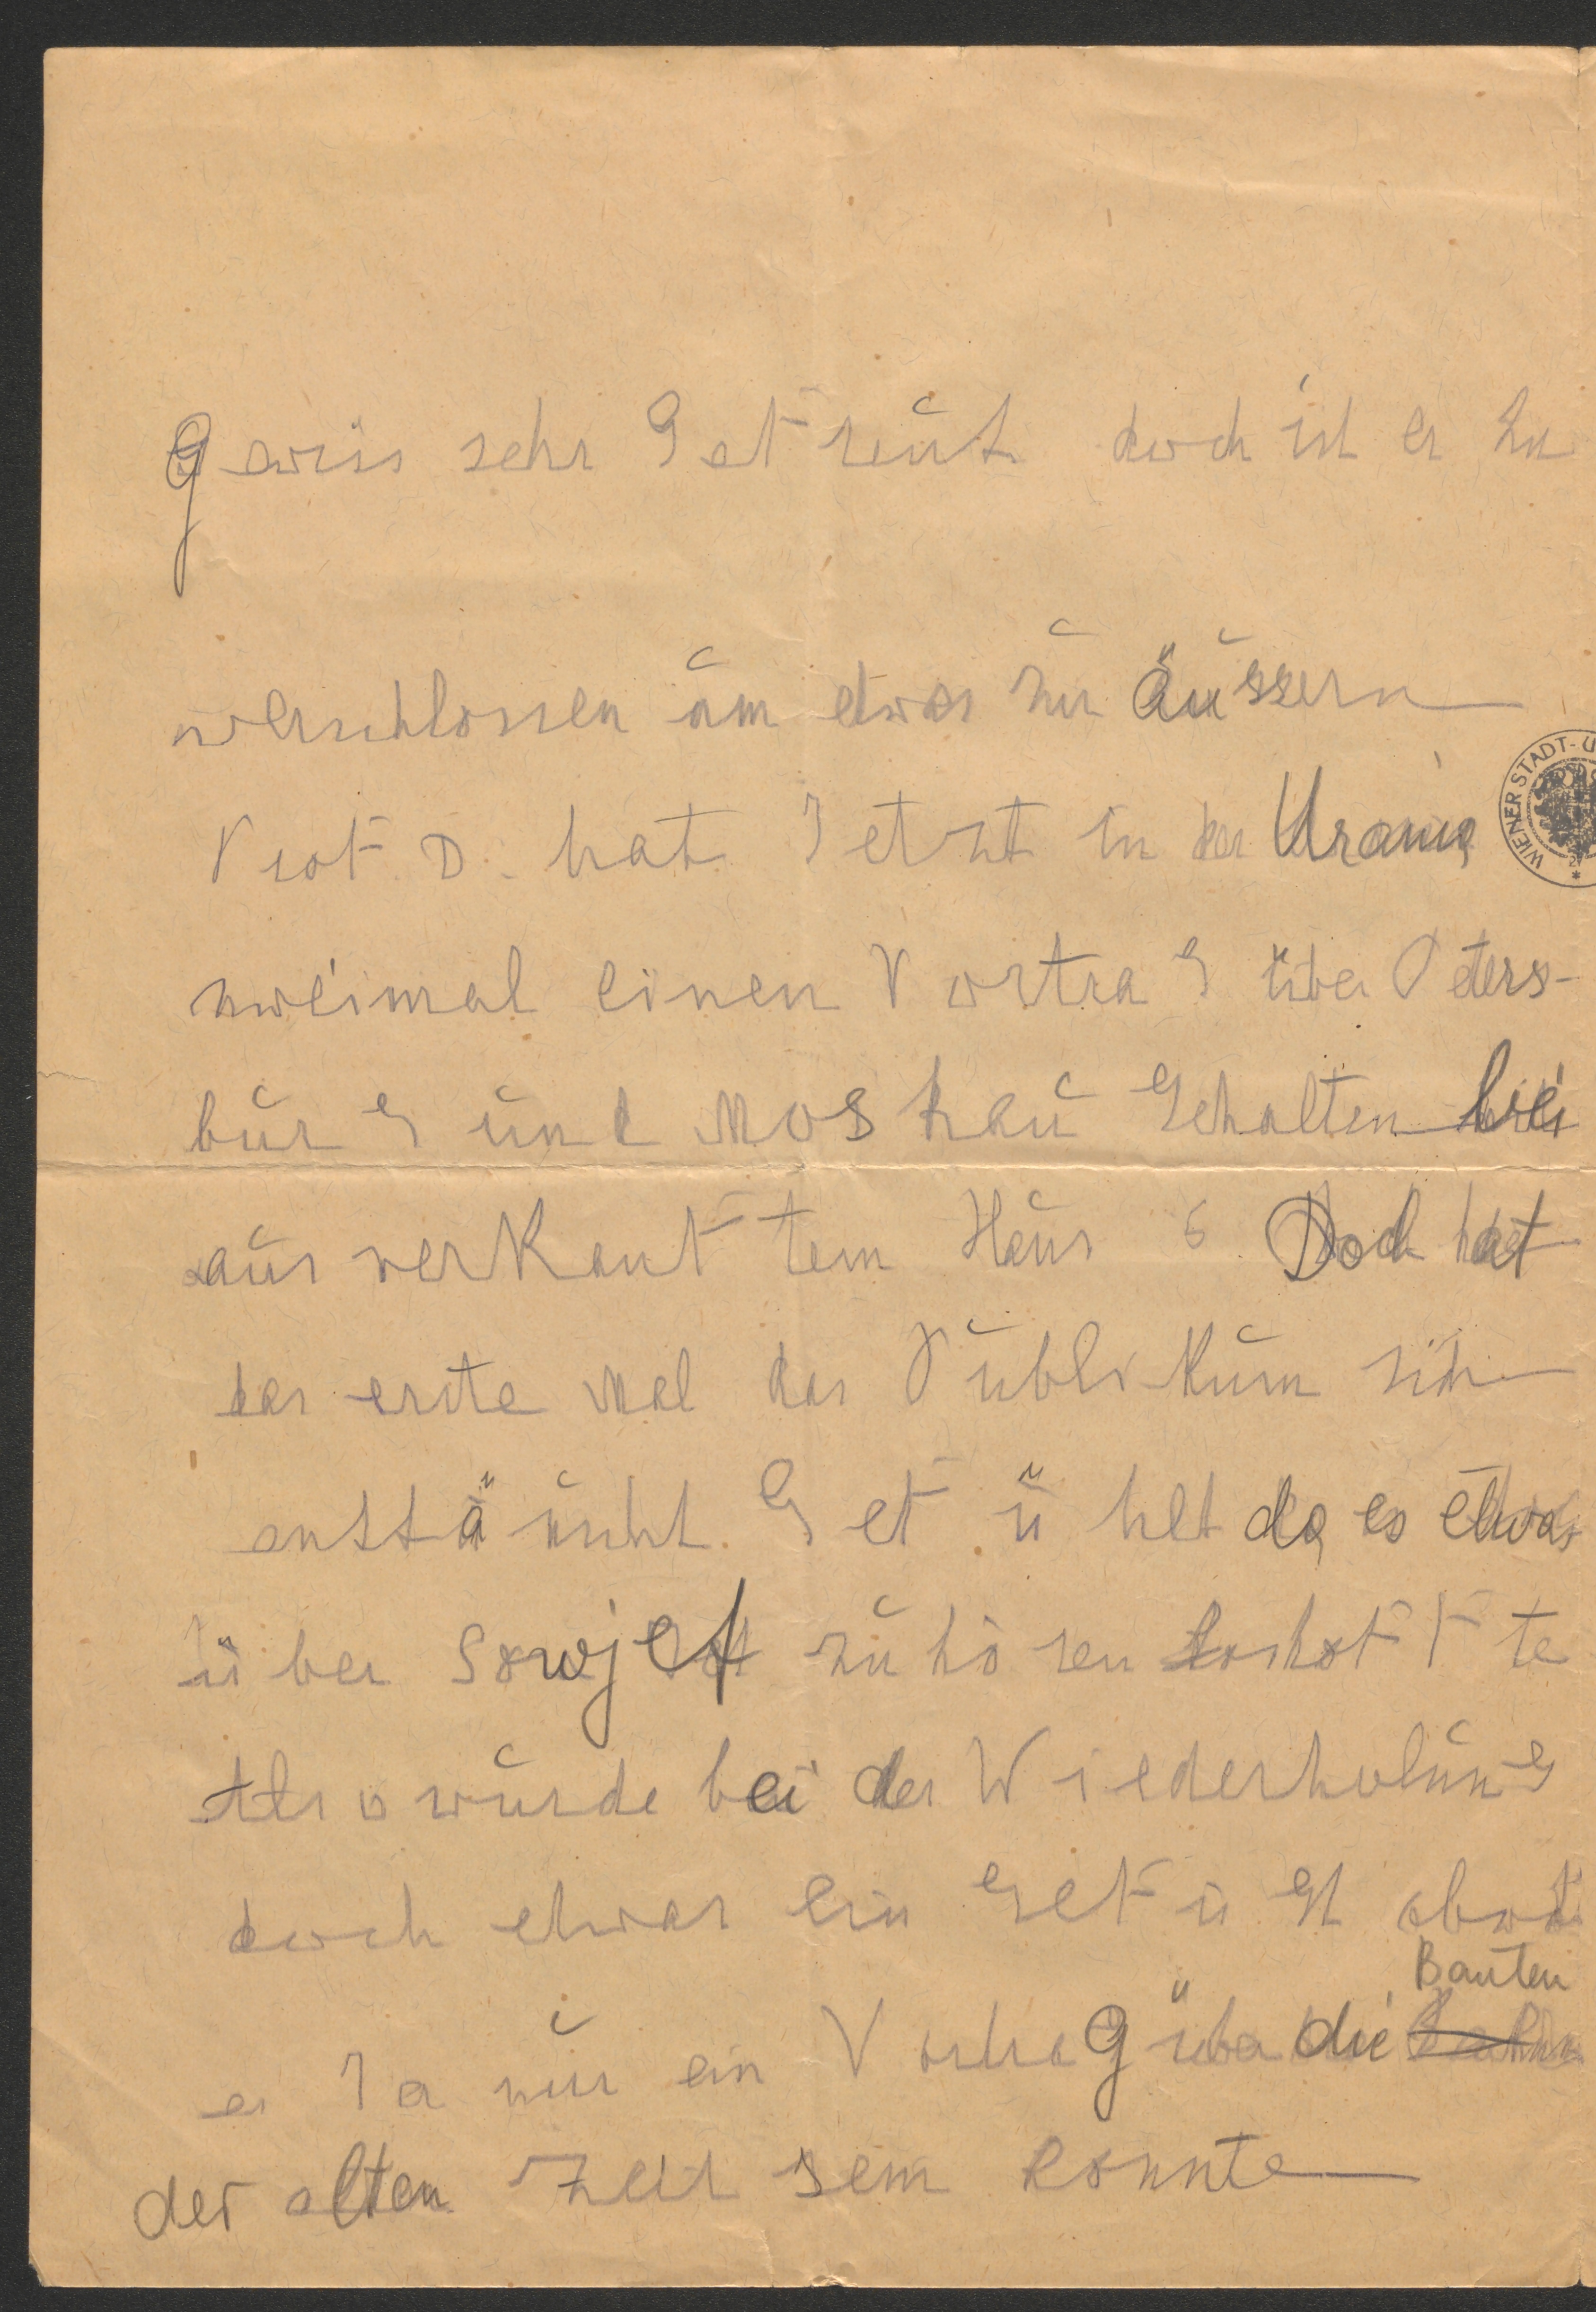 Gewiss sehr Gefreut doch ist er zu
verschlossen um etwas zu äussern
Prof. D. hat Jetzt in der Urania
WIENER STADT-U
zweimal einen Vortrag über Peters-
burg und Moskau Gehalten bei
ausverkauftem Haus. Doch hat
das erste Mal das Publikum sich
enttäuscht Gefühlt da es etwas
über Sowjet zu hören hoffte
Also wurde bei der Wiederholung
doch etwas ein Gefügt obwohl
Bauten
es Ja nur ein Vortrag über die
der alten Zeit sein konnte